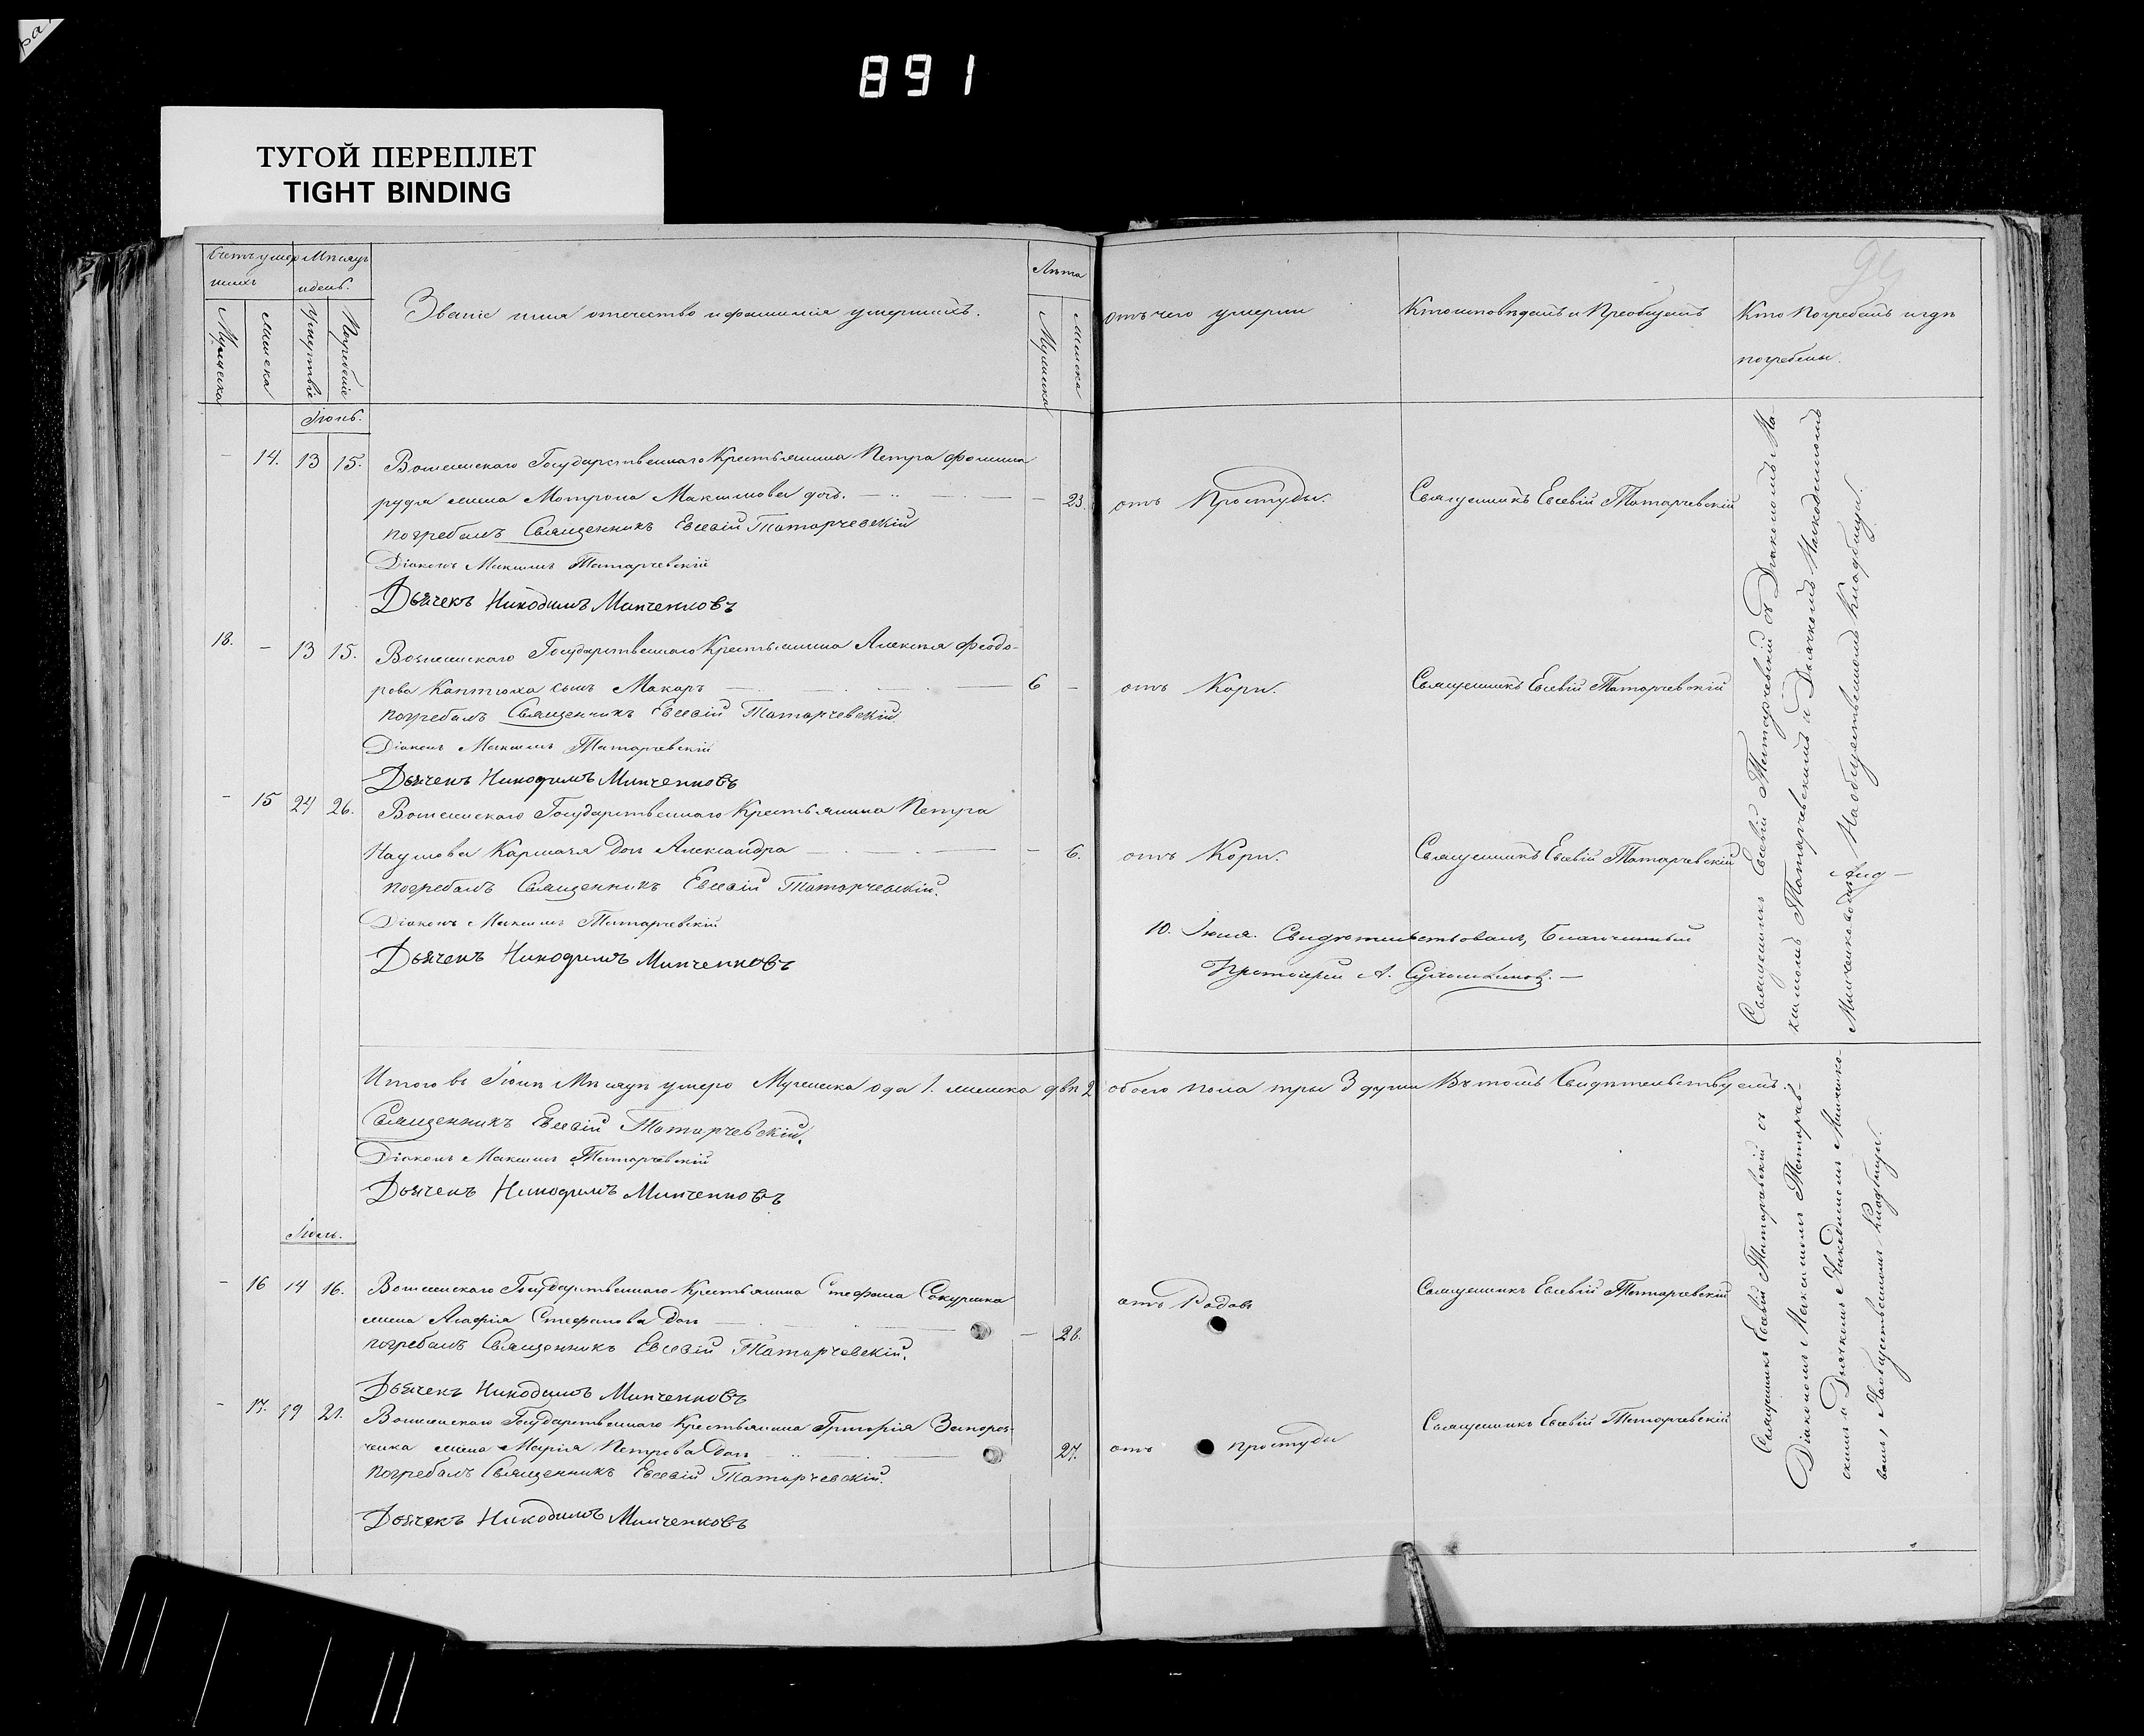 891
ТУГОЙ ПЕРЕПЛЕТ
TIGHT BINDING
Счетъ умер Мѣсяцъ
шихъ и день.
Званіе имя отечество и фамилія умершихъ.
Лѣта
отъ чего умерли
Кто исповѣдалъ и Пріобщалъ
Кто Погребалъ и гдѣ
погребены.
Мужеска
женска
Умертвіе
Погребеніе
Мужеска
женска
Іюнь.
- 14. 13 15. Государственнаго Крестьянина Петра Фомина
жена Мотрона Максимова дочь. - 23. отъ Простуды. Священникъ Евсевій Татарчевскій
погребалъ Священникъ Евсевій Татарчевскій
Діаконъ Максимъ Татарчевскій
Дьячекъ Никодимъ Минченковъ
18. - 13 15. Государственнаго Крестьянина Алексѣя Феодо-
рова Каптюха сынъ Макаръ 6 - отъ Кори. Священникъ Евсевій Татарчевскій
погребалъ Священникъ Евсевій Татарчевскій
Діаконъ Максимъ Татарчевскій
Дьячекъ Никодимъ Минченковъ
- 15 24 26. Государственнаго Крестьянина Петра
Наумова дочь Александра - 6. отъ Кори. Священникъ Евсевій Татарчевскій
погребалъ Священникъ Евсевій Татарчевскій.
Діаконъ Максимъ Татарчевскій
Дьячекъ Никодимъ Минченковъ
10. Іюля. Свидѣтельствовалъ, Благочинный
Протоіерей А.
Священникъ Евсевій Татарчевскій съ Діакономъ Ма-
ксимомъ Татарчевскимъ и Дьячкомъ Никодимомъ
Минченковымъ На общественномъ кладбищѣ.
Итого въ Іюнѣ Мѣсяцѣ умерло Мужеска 1. женска двѣ 2 обоего пола три 3 души Въ томъ Свидѣтельствуемъ.
Священникъ Евсевій Татарчевскій.
Діаконъ Максимъ Татарчевскій
Дьячекъ Никодимъ Минченковъ
Іюль.
- 16 14 16. Государственнаго Крестьянина Стефана
жена Агафія Стефанова Дочь - 28. отъ Родовъ Священникъ Евсевій Татарчевскій
погребалъ Священникъ Евсевій Татарчевскій.
Дьячекъ Никодимъ Минченковъ
- 17. 19 21. Государственнаго Крестьянина Григорія Запорож-
ченка жена Марія Петрова Дочь 27. отъ простуды Священникъ Евсевій Татарчевскій
погребалъ Священникъ Евсевій Татарчевскій.
Дьячекъ Никодимъ Минченковъ
Священникъ Евсевій Татарчевскій съ
Діакономъ Максимомъ Татарчев-
скимъ и Дьячкомъ Никодимомъ Минченко-
вымъ, На общественномъ кладбищѣ.